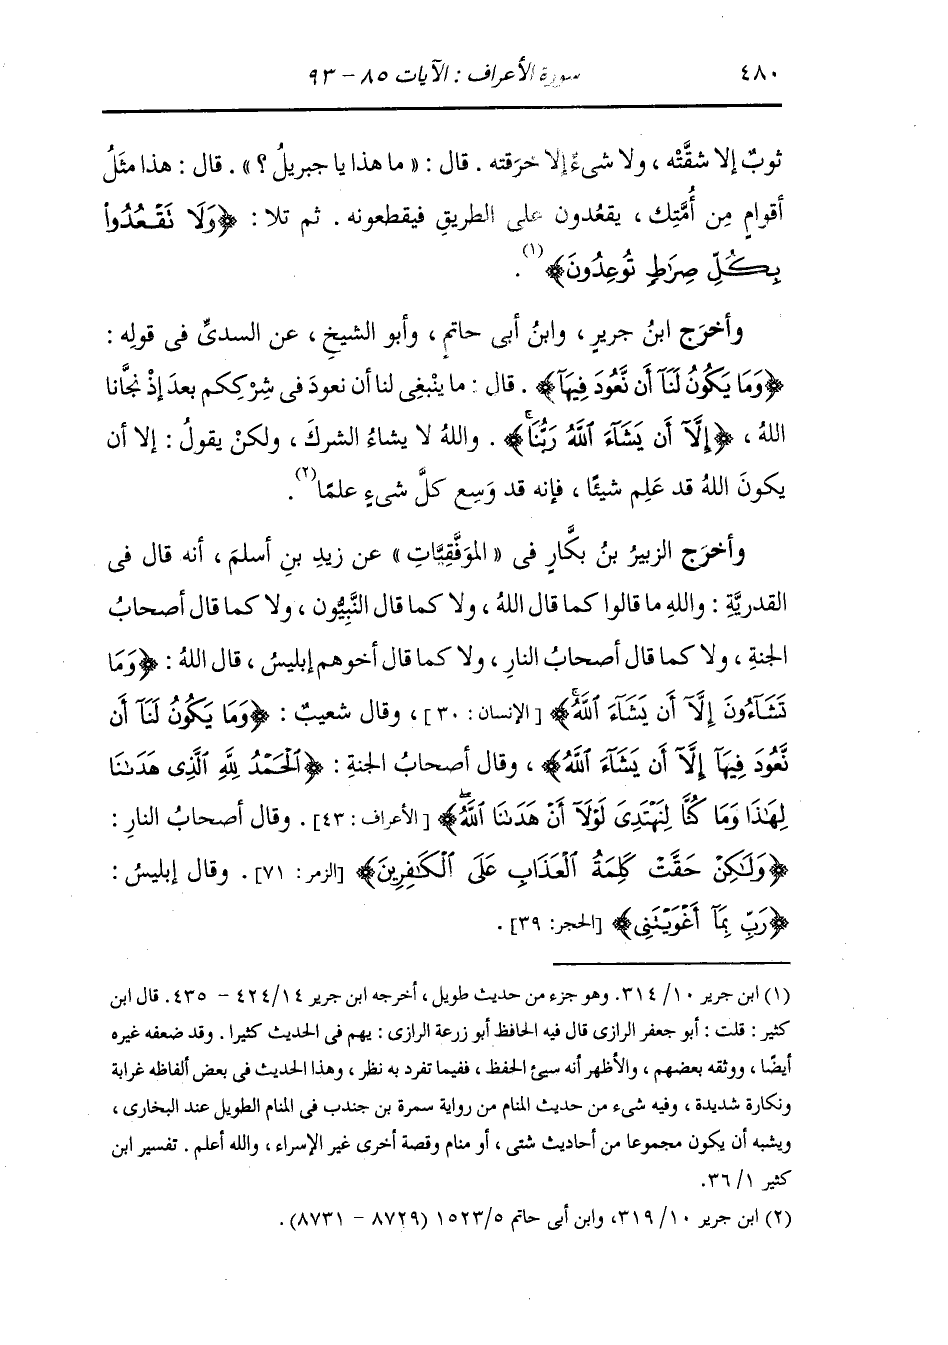 ٤٨٠ سورة الأعراف : الآيات ٨٥ - ٩٣
ثوبٌ إلا شقَّتْه ، ولا شىءٌ إلا خرَقته . قال : « ما هذا يا جبريلُ ؟ » . قال : هذا مثَلُ
أقوامٍ مِن أُمَّتِك ، يقعُدون على الطريقِ فيقطعونه . ثم تلا : ﴿وَلَا نَقۡعُدُواْ
بِكُلِّ صِرَٰطٍ تُوعِدُونَ﴾(١) .
وأخرَج ابنُ جريرٍ ، وابنُ أبى حاتمٍ ، وأبو الشيخِ ، عن السدىِّ فى قولِه :
﴿وَمَا يَكُونُ لَنَآ أَن نَّعُودَ فِيهَآ﴾ . قال : ما ينْبغِى لنا أن نعودَ فى شِرْكِكم بعدَ إذْ نجَّانا
اللهُ ، ﴿إِلَّآ أَن يَشَآءَ ٱللَّهُ رَبُّنَاۚ﴾ . واللهُ لا يشاءُ الشركَ ، ولكنْ يقولُ : إلا أن
يكونَ اللهُ قد عَلِم شيئًا ، فإنه قد وَسِع كلَّ شىءٍ علمًا(٢) .
وأخرَج الزبيرُ بنُ بكَّارٍ فى « الموَفَّقِيَّاتِ » عن زيدِ بنِ أسلمَ ، أنه قال فى
القدريَّةِ : واللهِ ما قالوا كما قال اللهُ ، ولا كما قال النَّبِيُّون ، ولا كما قال أصحابُ
الجنةِ ، ولا كما قال أصحابُ النارِ ، ولا كما قال أخوهم إبليسُ ، قال اللهُ : ﴿وَمَا
تَشَآءُونَ إِلَّآ أَن يَشَآءَ ٱللَّهُۚ﴾ [الإنسان : ٣٠] ، وقال شعيبٌ : ﴿وَمَا يَكُونُ لَنَآ أَن
نَّعُودَ فِيهَآ إِلَّآ أَن يَشَآءَ ٱللَّهُ﴾ ، وقال أصحابُ الجنةِ : ﴿ٱلۡحَمۡدُ لِلَّهِ ٱلَّذِى هَدَىٰنَا
لِهَٰذَا وَمَا كُنَّا لِنَهۡتَدِىَ لَوۡلَآ أَنۡ هَدَىٰنَا ٱللَّهُۖ﴾ [الأعراف : ٤٣] . وقال أصحابُ النارِ :
﴿وَلَٰكِنۡ حَقَّتۡ كَلِمَةُ ٱلۡعَذَابِ عَلَى ٱلۡكَٰفِرِينَ﴾ [الزمر : ٧١] . وقال إبليسُ :
﴿رَبِّ بِمَآ أَغۡوَيۡتَنِى﴾ [الحجر: ٣٩] .
(١) ابن جرير ١٠/ ٣١٤. وهو جزء من حديث طويل ، أخرجه ابن جرير ١٤/ ٤٢٤ - ٤٣٥. قال ابن
كثير : قلت : أبو جعفر الرازى قال فيه الحافظ أبو زرعة الرازى : يهم فى الحديث كثيرا . وقد ضعفه غيره
أيضًا ، ووثقه بعضهم ، والأظهر أنه سيئ الحفظ ، ففيما تفرد به نظر ، وهذا الحديث فى بعض ألفاظه غرابة
ونكارة شديدة ، وفيه شىء من حديث المنام من رواية سمرة بن جندب فى المنام الطويل عند البخارى ،
ويشبه أن يكون مجموعا من أحاديث شتى ، أو منام وقصة أخرى غير الإسراء ، والله أعلم . تفسير ابن
كثير ١/ ٣٦.
(٢) ابن جرير ١٠/ ٣١٩، وابن أبى حاتم ٥/ ١٥٢٣ (٨٧٢٩ - ٨٧٣١) .